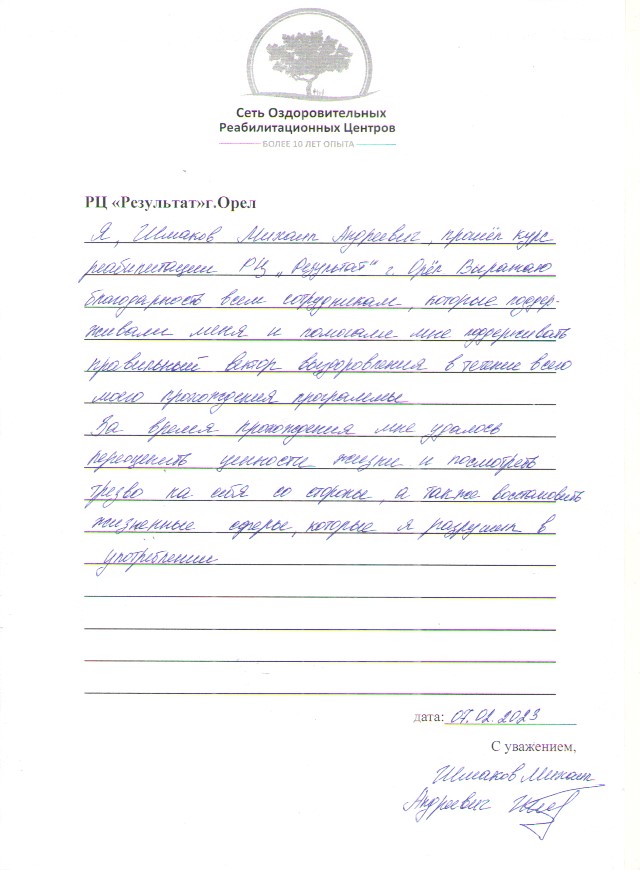 Сеть Оздоровительных
Реабилитационных Центров
БОЛЕЕ 10 ЛЕТ ОПЫТА
РЦ «Результат»г.Орел
Я, Шмаков Михаил Андреевич, прошёл курс
реабилитации РЦ „Результат“ г. Орёл Выражаю
благодарность всем сотрудникам, которые поддер-
живали меня и помогали мне поддерживать
правильный вектор выздоровления в течение всего
моего прохождения программы
За время прохождения мне удалось
переоценить ценности жизни и посмотреть
трезво на себя со стороны, а также восстановить
жизненные сферы, которые я разрушил в
употреблении
дата: 07.02.2023
С уважением,
Шмаков Михаил
Андреевич